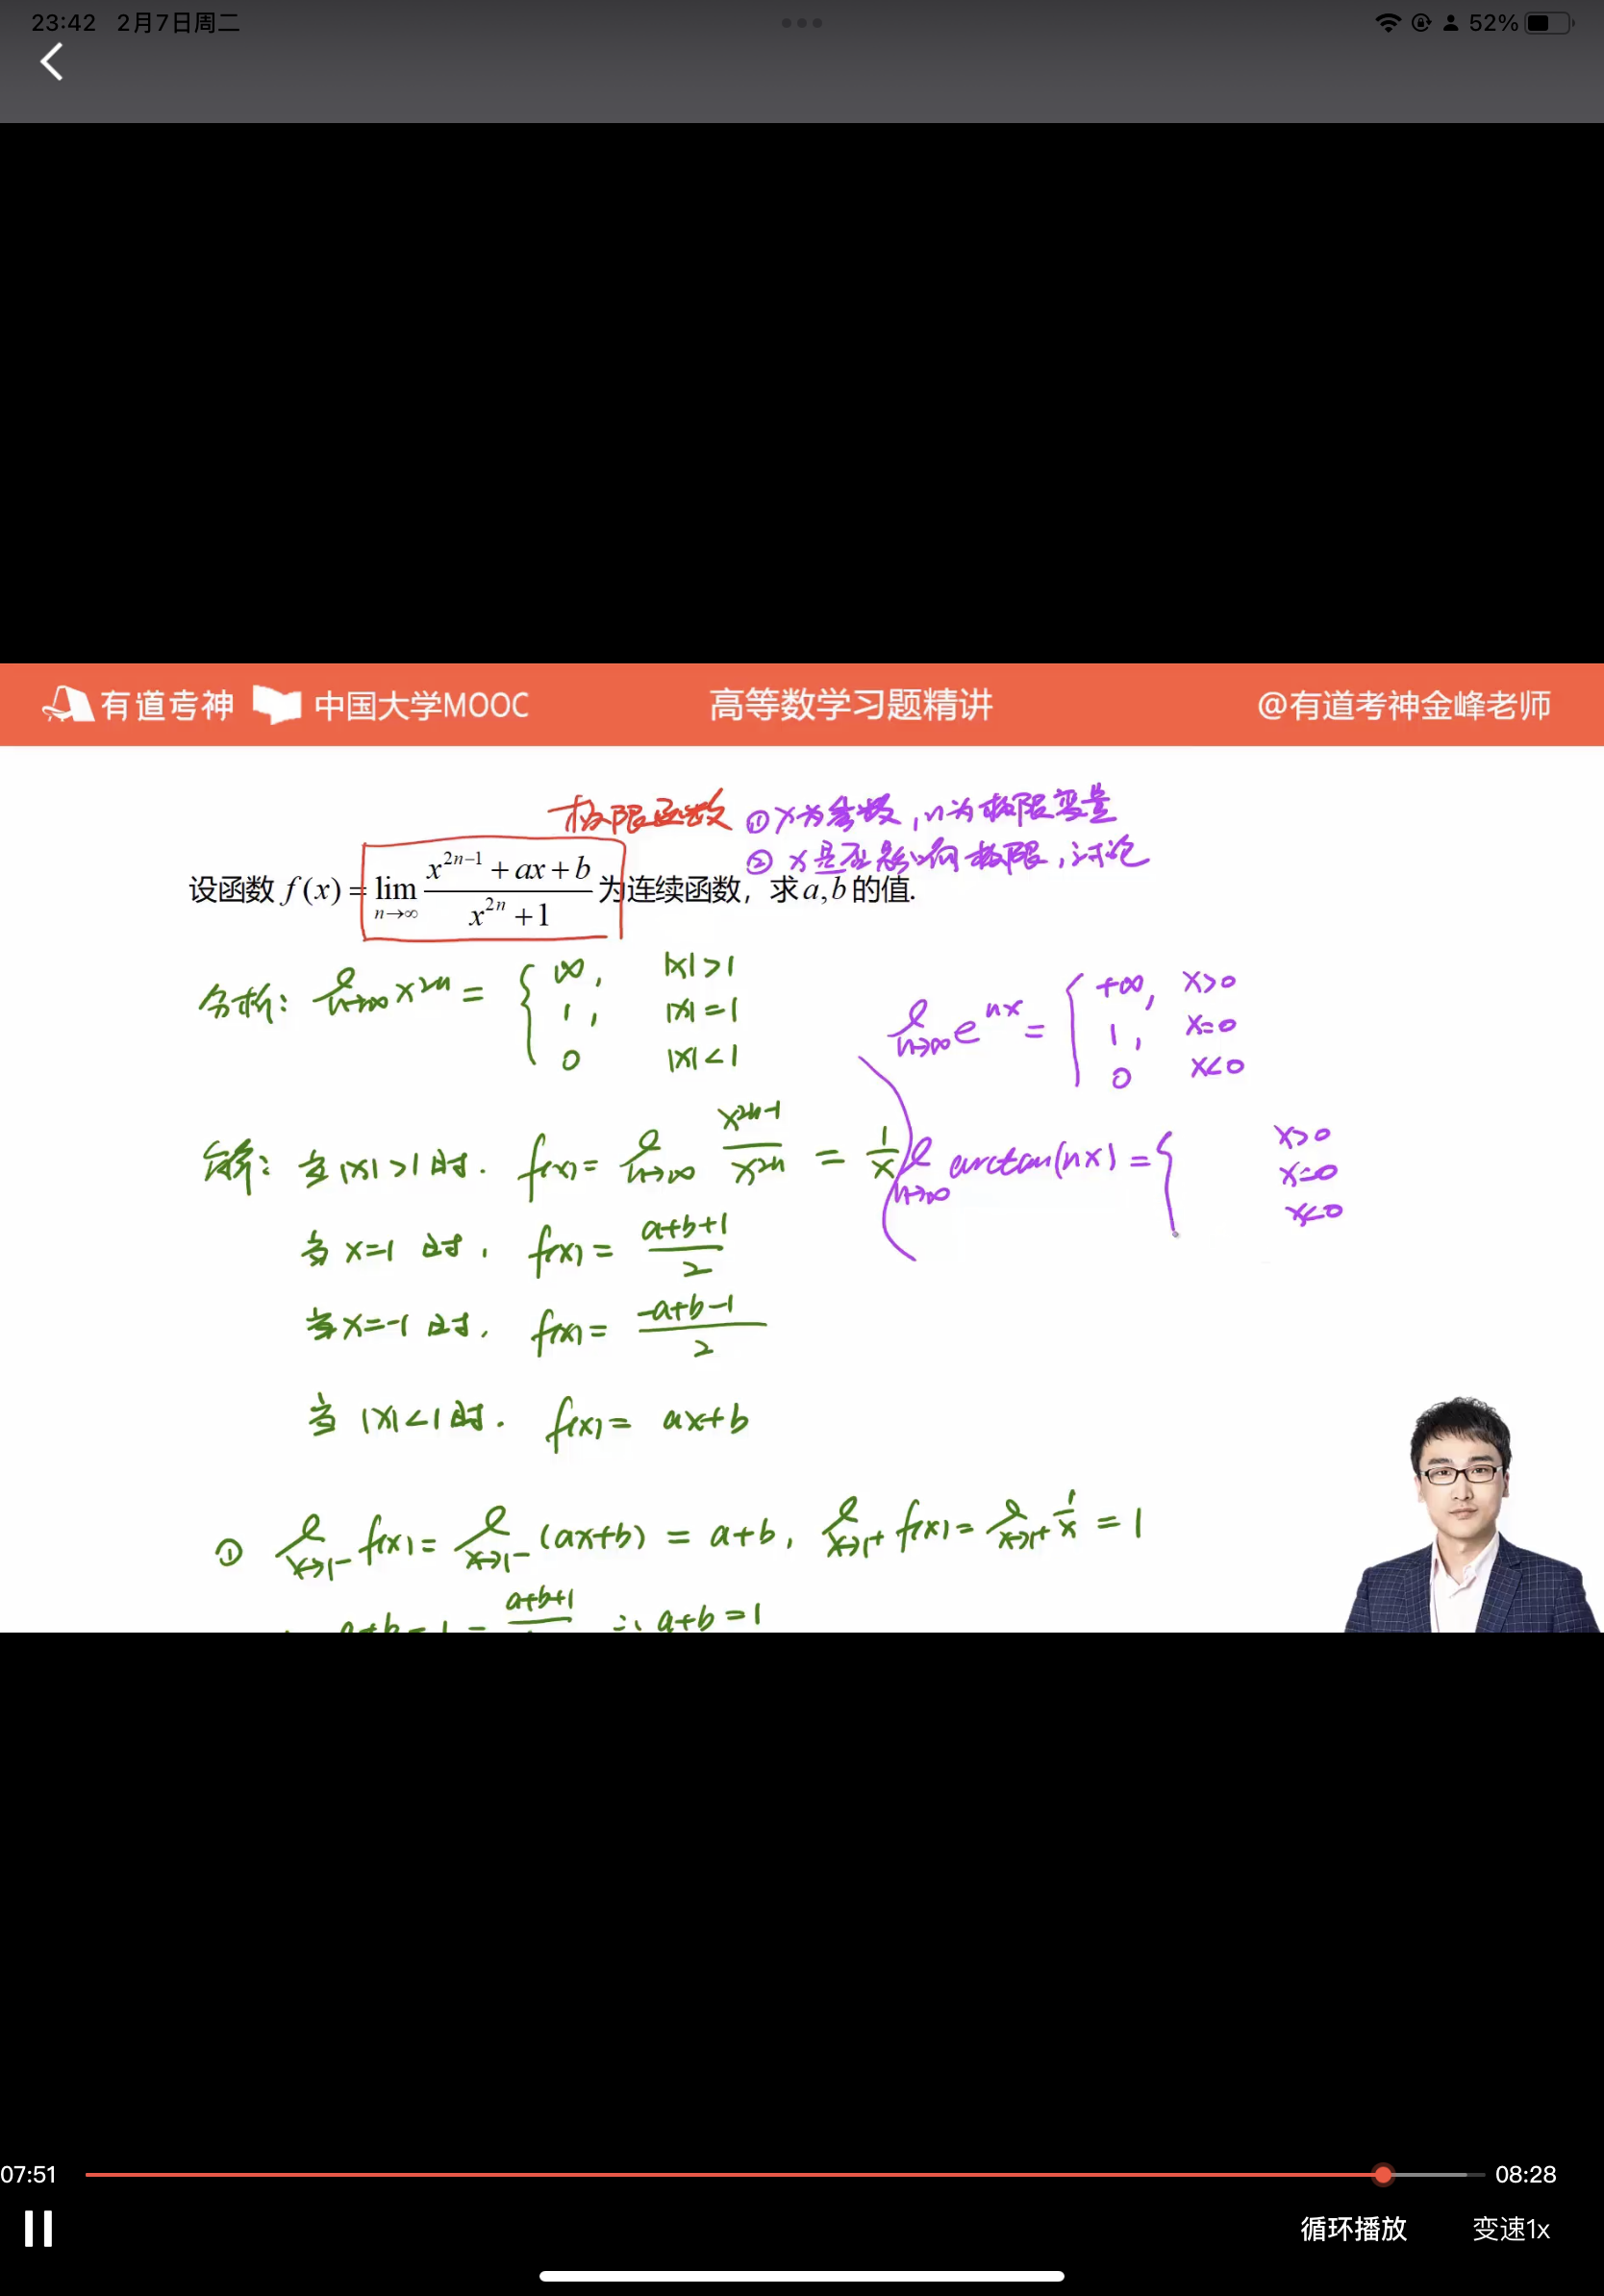 23:42 2月7日周二 52%
有道考神 中国大学MOOC 高等数学习题精讲 @有道考神金峰老师
极限函数 ① x为参数,n为极限变量
② x是否影响极限,讨论
设函数 f(x) = lim n→∞ (x^{2n-1} + ax + b)/(x^{2n} + 1) 为连续函数，求 a,b 的值.
分析: lim n→∞ x^{2n} = { ∞, |x|>1
1, |x|=1
0 |x|<1
lim n→∞ e^{nx} = { +∞, x>0
1, x=0
0 x<0
解: 当|x|>1时. f(x) = lim n→∞ x^{2n-1}/x^{2n} = 1/x
lim n→∞ arctan(nx) = { x>0
x=0
x<0
当 x=1 时, f(x) = (a+b+1)/2
当 x=-1 时, f(x) = (-a+b-1)/2
当 |x|<1时. f(x) = ax+b
① lim x→1⁻ f(x) = lim x→1⁻ (ax+b) = a+b, lim x→1⁺ f(x) = lim x→1⁺ 1/x = 1
a+b=1= a+b+1 ∴ a+b=1
07:51 08:28
循环播放 变速1x